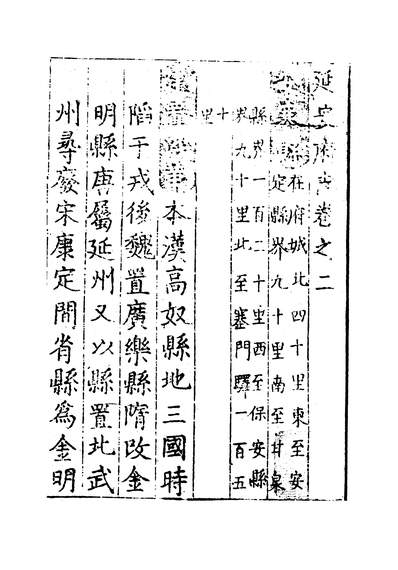 延安府志卷之二
在府城北四十里東至安
定縣界九十里南至甘泉
縣界一百二十里西至保安縣
界九十里北至塞門驛一百五
十里
本漢高奴縣地三國時
陷于戎後魏置廣樂縣隋改金
明縣唐屬延州又以縣置北武
州尋廢宋康定間省縣爲金明